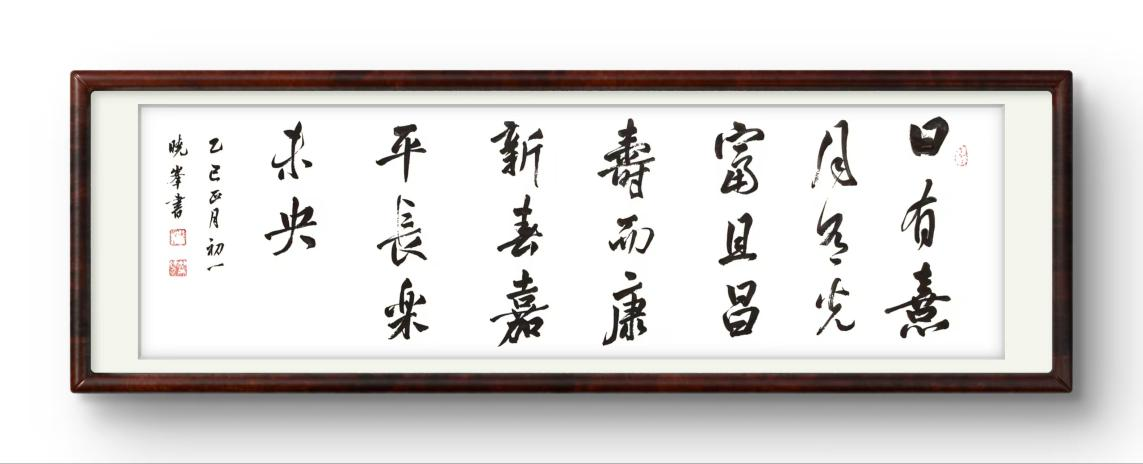 日有熹
月有光
富且昌
壽而康
新春嘉
平長楽
未央
乙巳正月初一
曉峯書